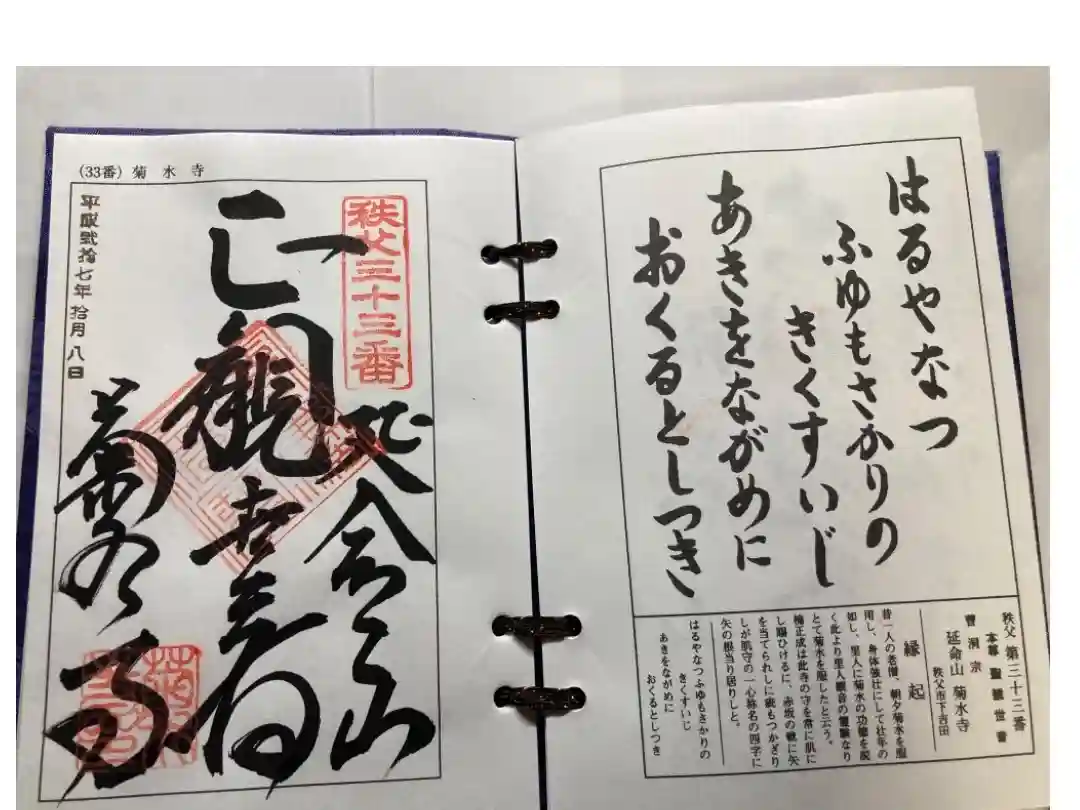 はるやなつ
ふゆもさかりの
きくすいじ
あきをながめに
おくるとしつき
秩父 第三十三番
本尊 聖観世音
曹洞宗
延命山 菊水寺
秩父市下吉田
縁起
昔一人の老僧、朝夕菊水を服
用し、身体強壮にして壮年の
如し、里人に菊水の功徳を説
く此より里人観音の霊験なり
とて菊水を服したと云う。
楠正成は此寺の守を常に肌に
し賜ひけるに、赤坂の戦に矢
を当てられしに疵もつかざり
しが肌守の一心称名の四字に
矢の根当り居りしと。
はるやなつふゆもさかりの
きくすいじ
あきをながめに
おくるとしつき
(33番) 菊水寺
秩父三十三番
延命山
菊水寺
平成弐拾七年 拾月八日